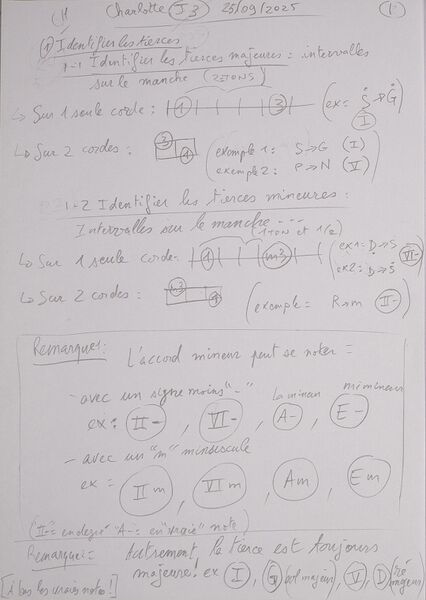 Charlotte J3 25/09/2025 1
① Identifier les tierces
1-1 Identifier les tierces majeures : intervalles
sur le manche (2 TONS)
↳ Sur 1 seule corde : 1 3 (ex: S → G I)
↳ Sur 2 cordes : 3 1 (exemple 1: S → G (I)
exemple 2: P → N (V)
1-2 Identifier les tierces mineures :
Intervalles sur le manche --- (1 TON et 1/2)
↳ Sur 1 seule corde 1 m3 (ex1: D → S VI-
ex2: D → S
↳ Sur 2 cordes : 1 (exemple = R → m II-)
Remarque: L'accord mineur peut se noter =
- avec un signe moins "-" La mineur mi mineur
ex: II- , VI- , A- , E-
- avec un "m" minuscule
ex = II m , VI m , Am , Em
("II-" = en degré "A-" = en "vraie" note)
Remarque = Autrement, la tierce est toujours
majeure! ex I , G (sol majeur), V , D (ré majeur)
[à bas les vraies notes!]